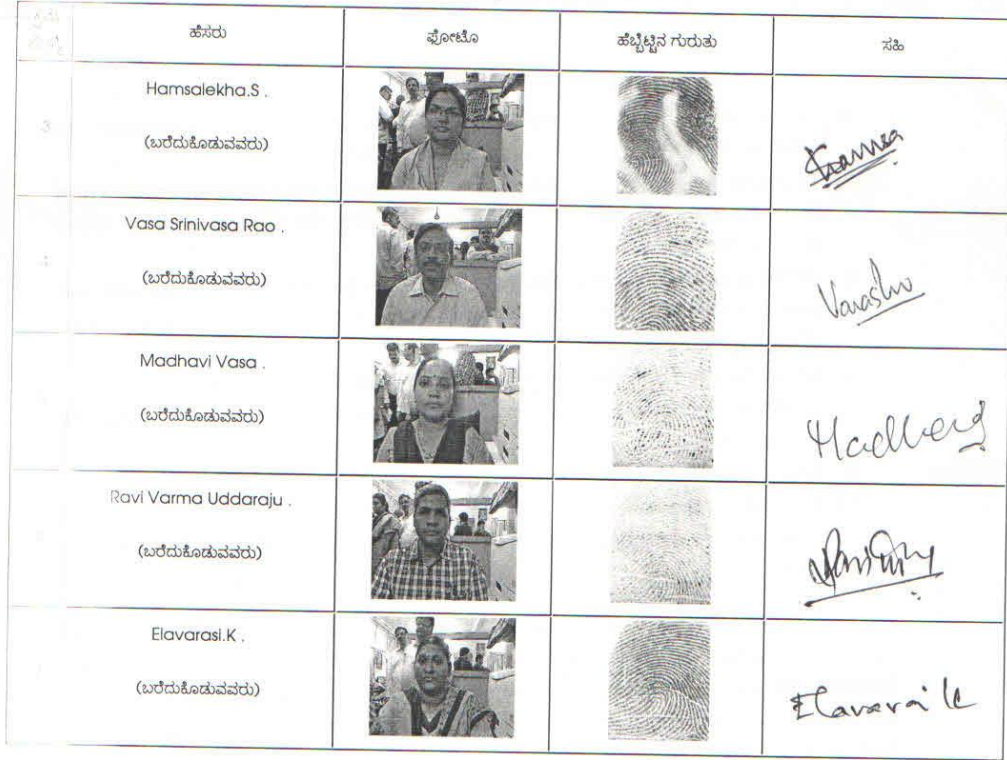 ಹೆಸರು ಫೋಟೊ ಹೆಬ್ಬೆಟ್ಟಿನ ಗುರುತು ಸಹಿ
3 Hamsalekha.S .
(ಬರೆದುಕೊಡುವವರು)
Vasa Srinivasa Rao .
(ಬರೆದುಕೊಡುವವರು)
Madhavi Vasa .
(ಬರೆದುಕೊಡುವವರು)
Ravi Varma Uddaraju .
(ಬರೆದುಕೊಡುವವರು)
Elavarasi.K .
(ಬರೆದುಕೊಡುವವರು)